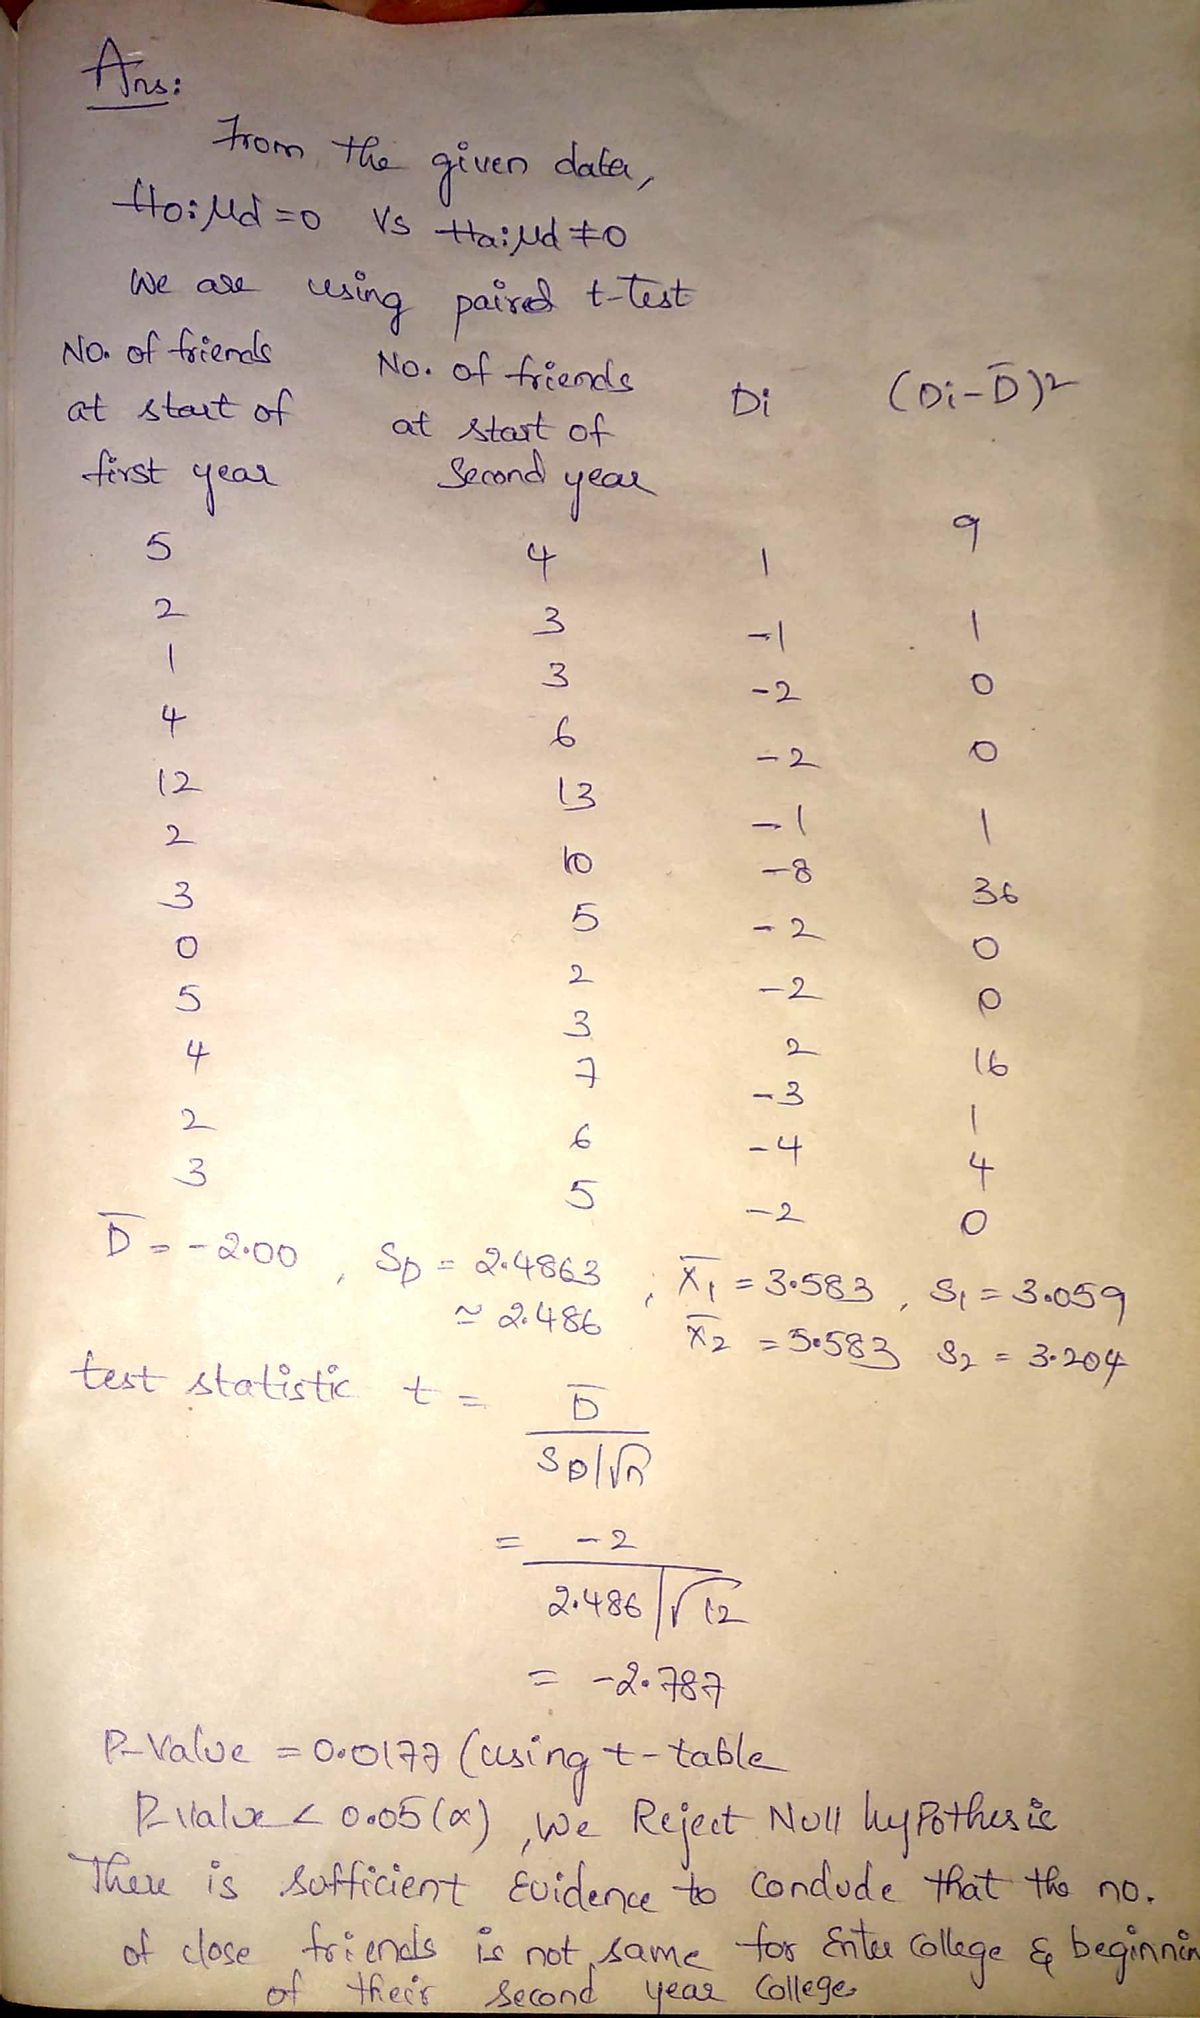 Ans:
From the given data,
Ho: μd = 0 Vs Ha: μd ≠ 0
We are using paired t-test
No. of friends at start of first year | No. of friends at start of Second year | Di | (Di - D̄)²
5 4 1 9
2 3 -1 1
1 3 -2 0
4 6 -2 0
12 13 -1 1
2 10 -8 36
3 5 -2 0
0 2 -2 0
5 3 2 16
4 7 -3 1
2 6 -4 4
3 5 -2 0
D̄ = -2.00 , SD = 2.4863 ; X̄1 = 3.583 , S1 = 3.059
≃ 2.486 X̄2 = 5.583 S2 = 3.204
test statistic t = D̄
SD/√n
= -2
2.486/√12
= -2.787
P-Value = 0.0177 (using t-table
P-value < 0.05(α) , we Reject Null hypothesis
There is sufficient Evidence to Conclude that the no.
of close friends is not same for Enter College & beginnin
of their second year College.